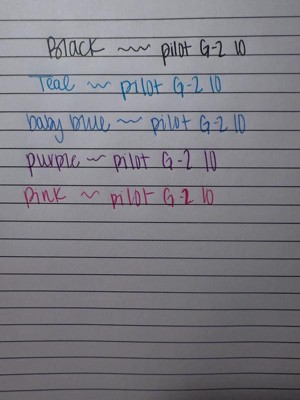 Black ~~ pilot G-2 10
Teal ~ pilot G-2 10
baby blue ~ pilot G-2 10
purple ~ pilot G-2 10
pink ~ pilot G-2 10